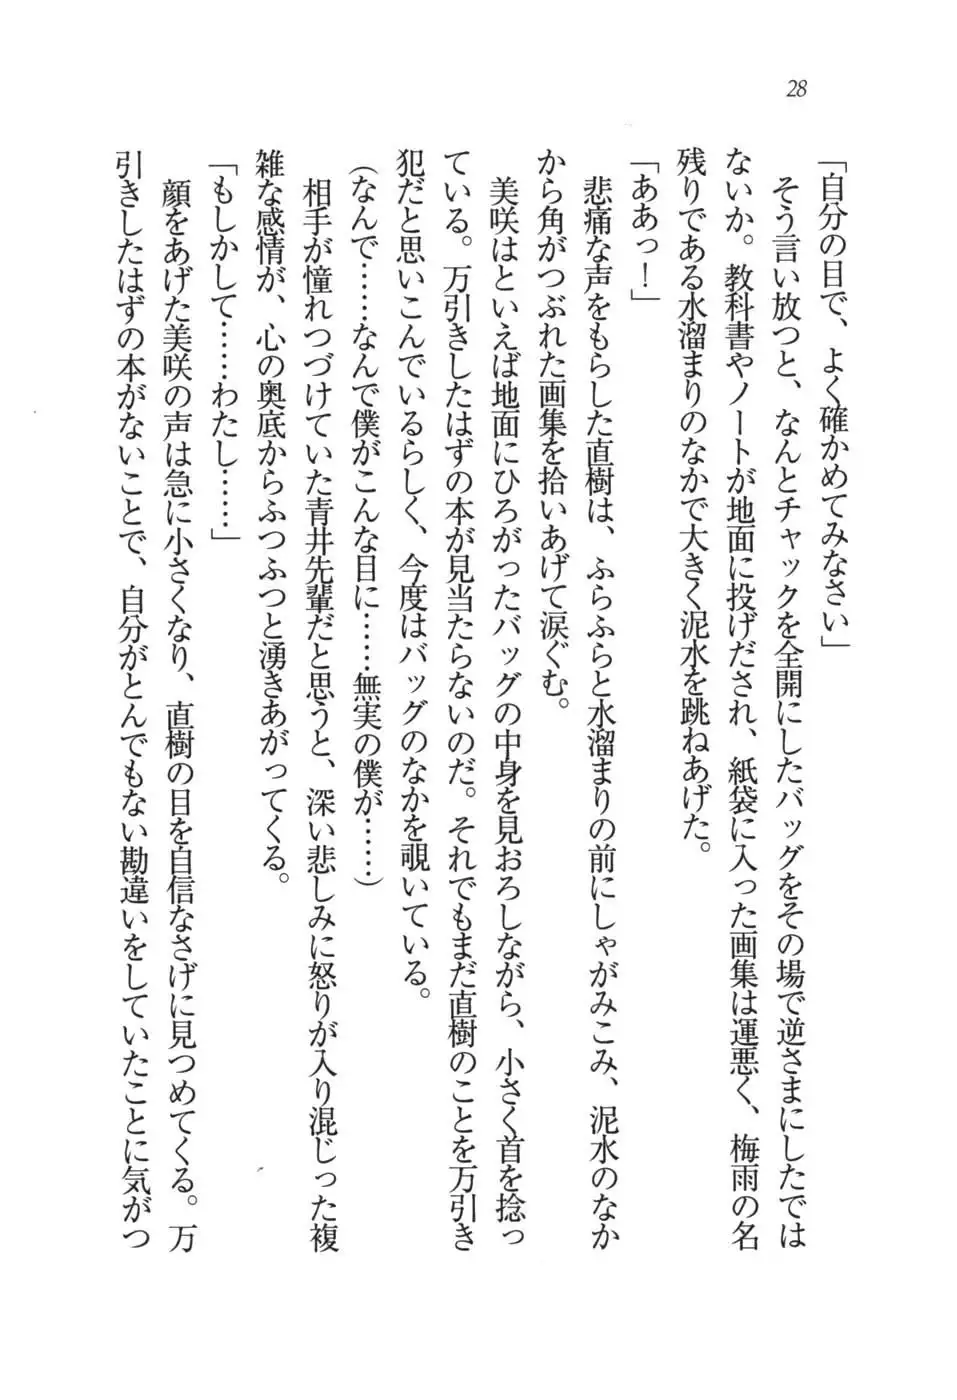 28
「自分の目で、よく確かめてみなさい」
そう言い放つと、なんとチャックを全開にしたバッグをその場で逆さまにしたでは
ないか。教科書やノートが地面に投げだされ、紙袋に入った画集は運悪く、梅雨の名
残りである水溜まりのなかで大きく泥水を跳ねあげた。
「ああっ！」
悲痛な声をもらした直樹は、ふらふらと水溜まりの前にしゃがみこみ、泥水のなか
から角がつぶれた画集を拾いあげて涙ぐむ。
美咲はといえば地面にひろがったバッグの中身を見おろしながら、小さく首を捻っ
ている。万引きしたはずの本が見当たらないのだ。それでもまだ直樹のことを万引き
犯だと思いこんでいるらしく、今度はバッグのなかを覗いている。
（なんで……なんで僕がこんな目に……無実の僕が……）
相手が憧れつづけていた青井先輩だと思うと、深い悲しみに怒りが入り混じった複
雑な感情が、心の奥底からふつふつと湧きあがってくる。
「もしかして……わたし……」
顔をあげた美咲の声は急に小さくなり、直樹の目を自信なさげに見つめてくる。万
引きしたはずの本がないことで、自分がとんでもない勘違いをしていたことに気がつ